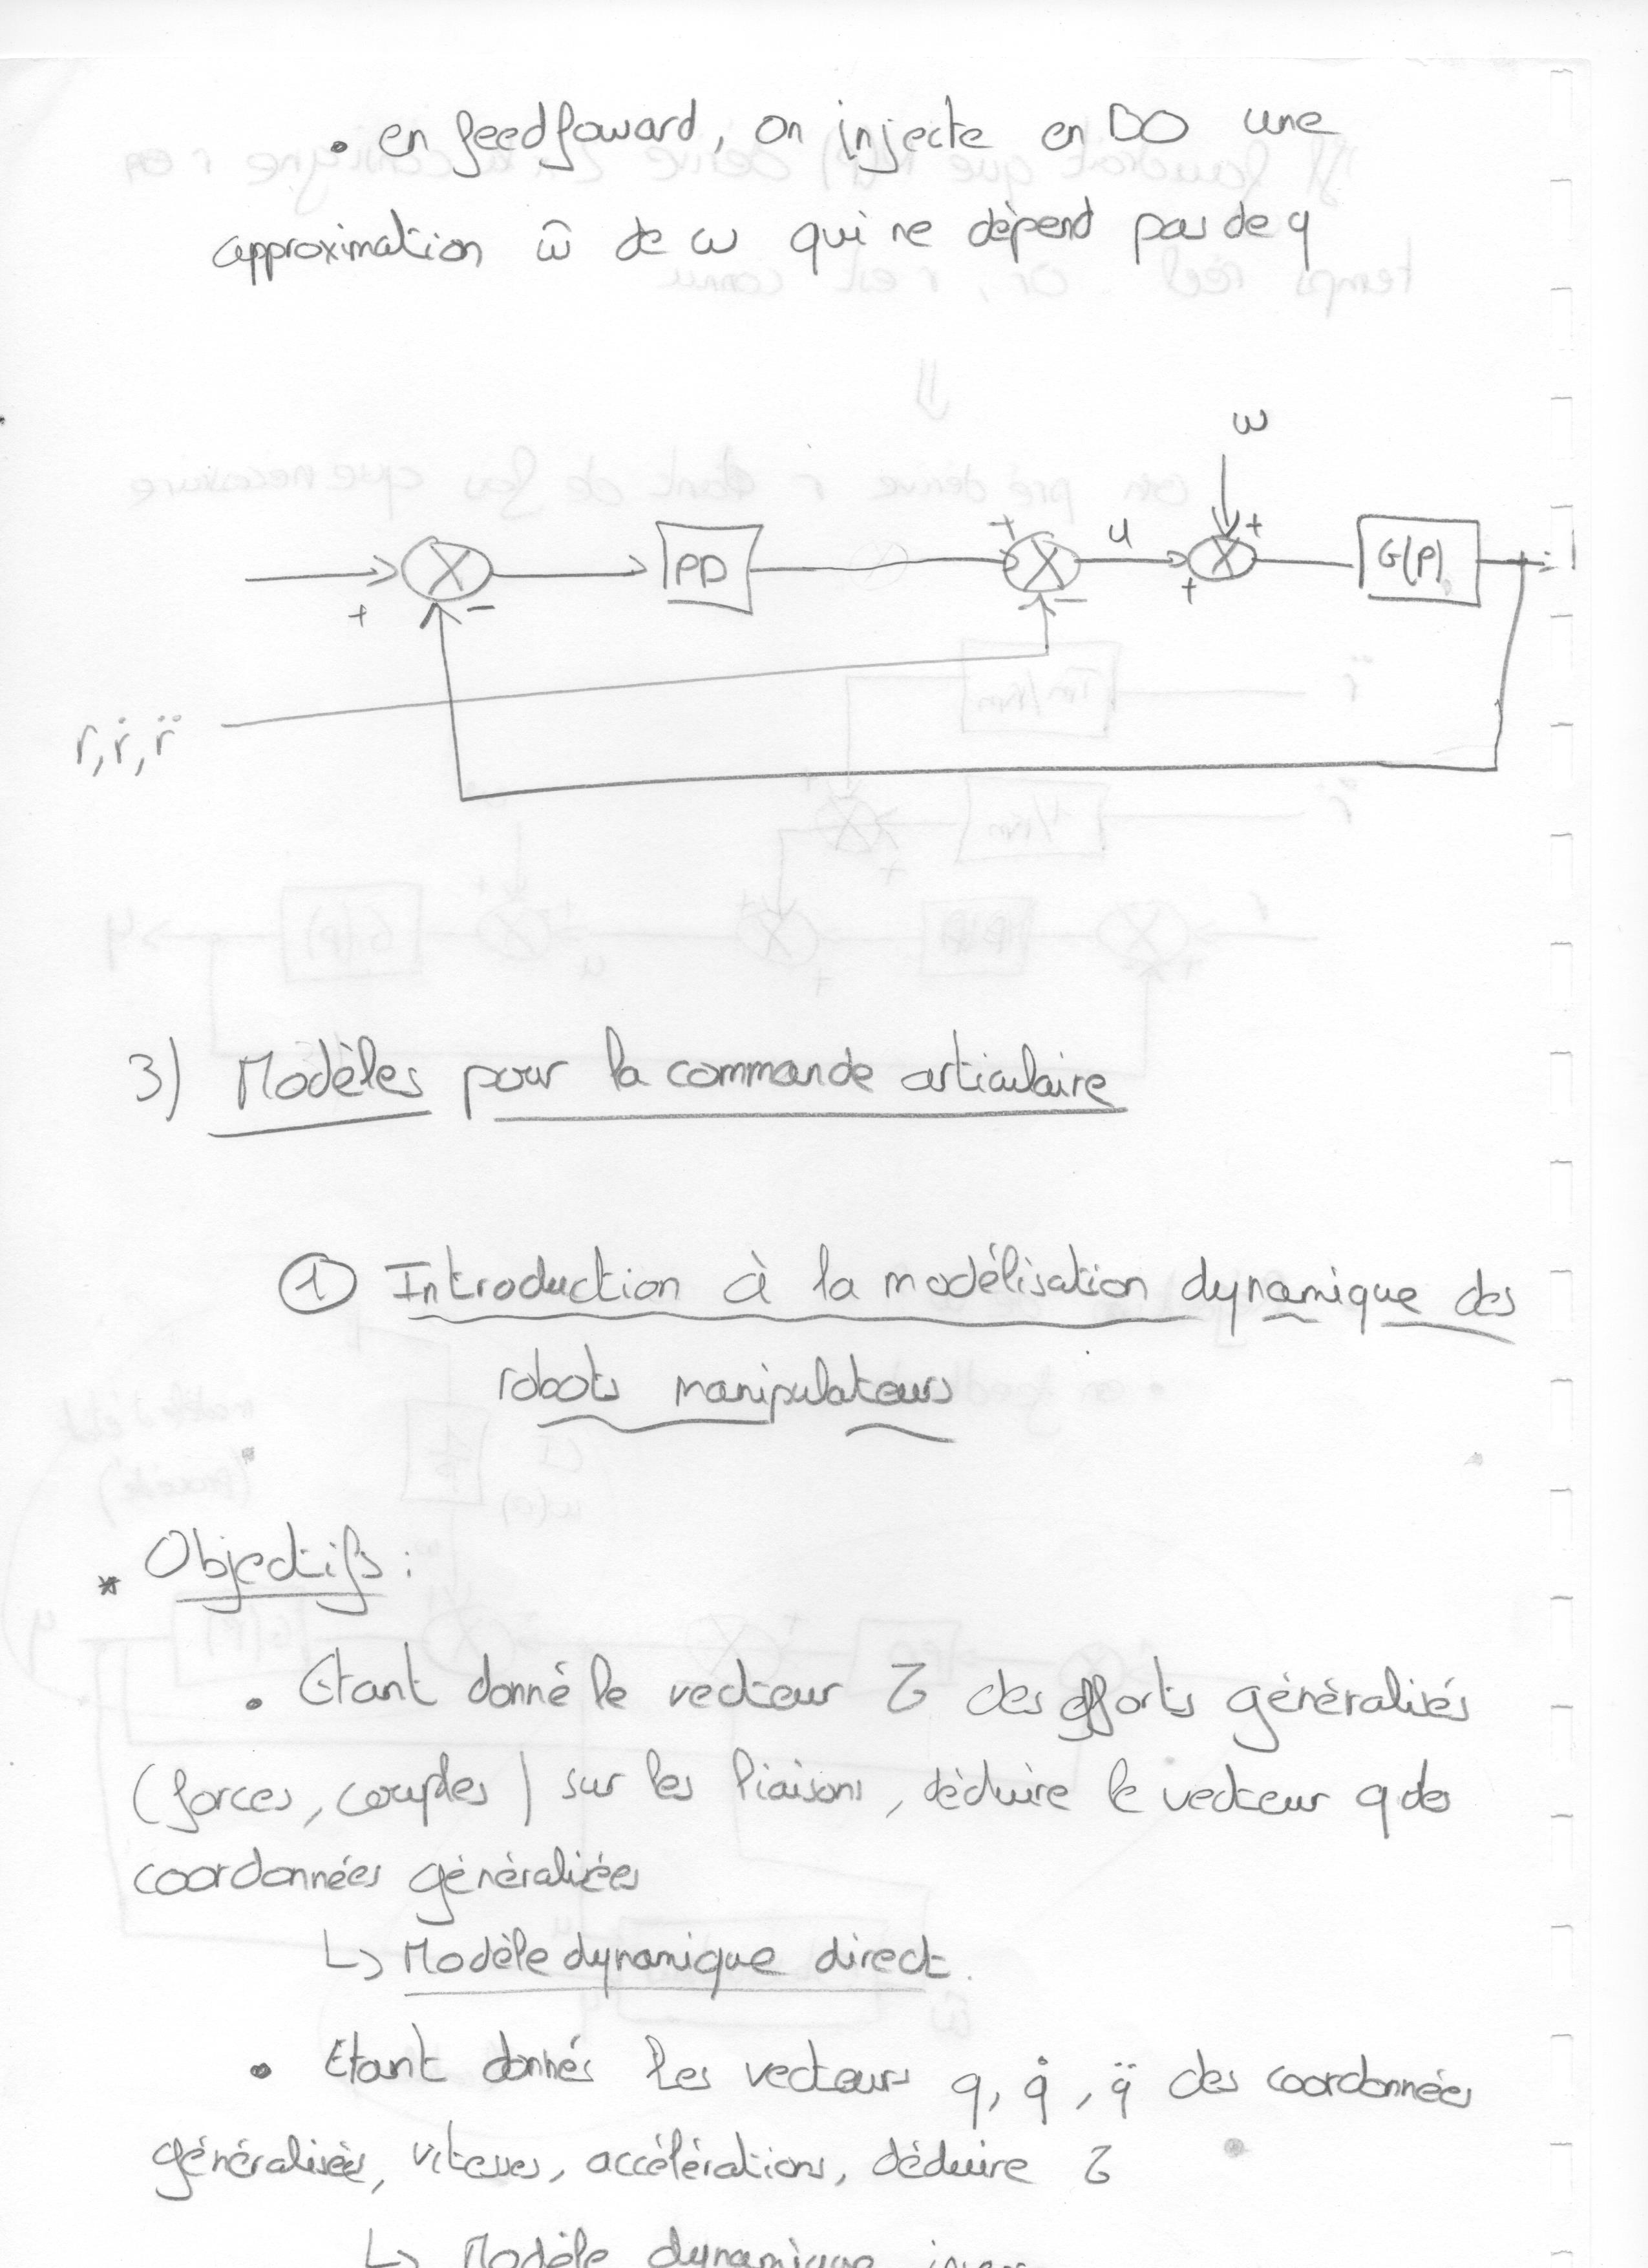 • en feedfoward, on injecte en BO une
approximation ŵ de w qui ne dépend pas de q
w
+ u +
PD G(P)
+ - - +
r, ṙ, r̈
3) Modèles pour la commande articulaire
① Introduction à la modélisation dynamique des
robots manipulateurs
* Objectifs :
• Etant donné le vecteur τ des efforts généralisés
(forces, couples) sur les liaisons, déduire le vecteur q des
coordonnées généralisées
↳ Modèle dynamique direct.
• Etant donnés les vecteurs q, q̇, q̈ des coordonnées
généralisées, vitesses, accélérations, déduire τ
↳ Modèle dynamique